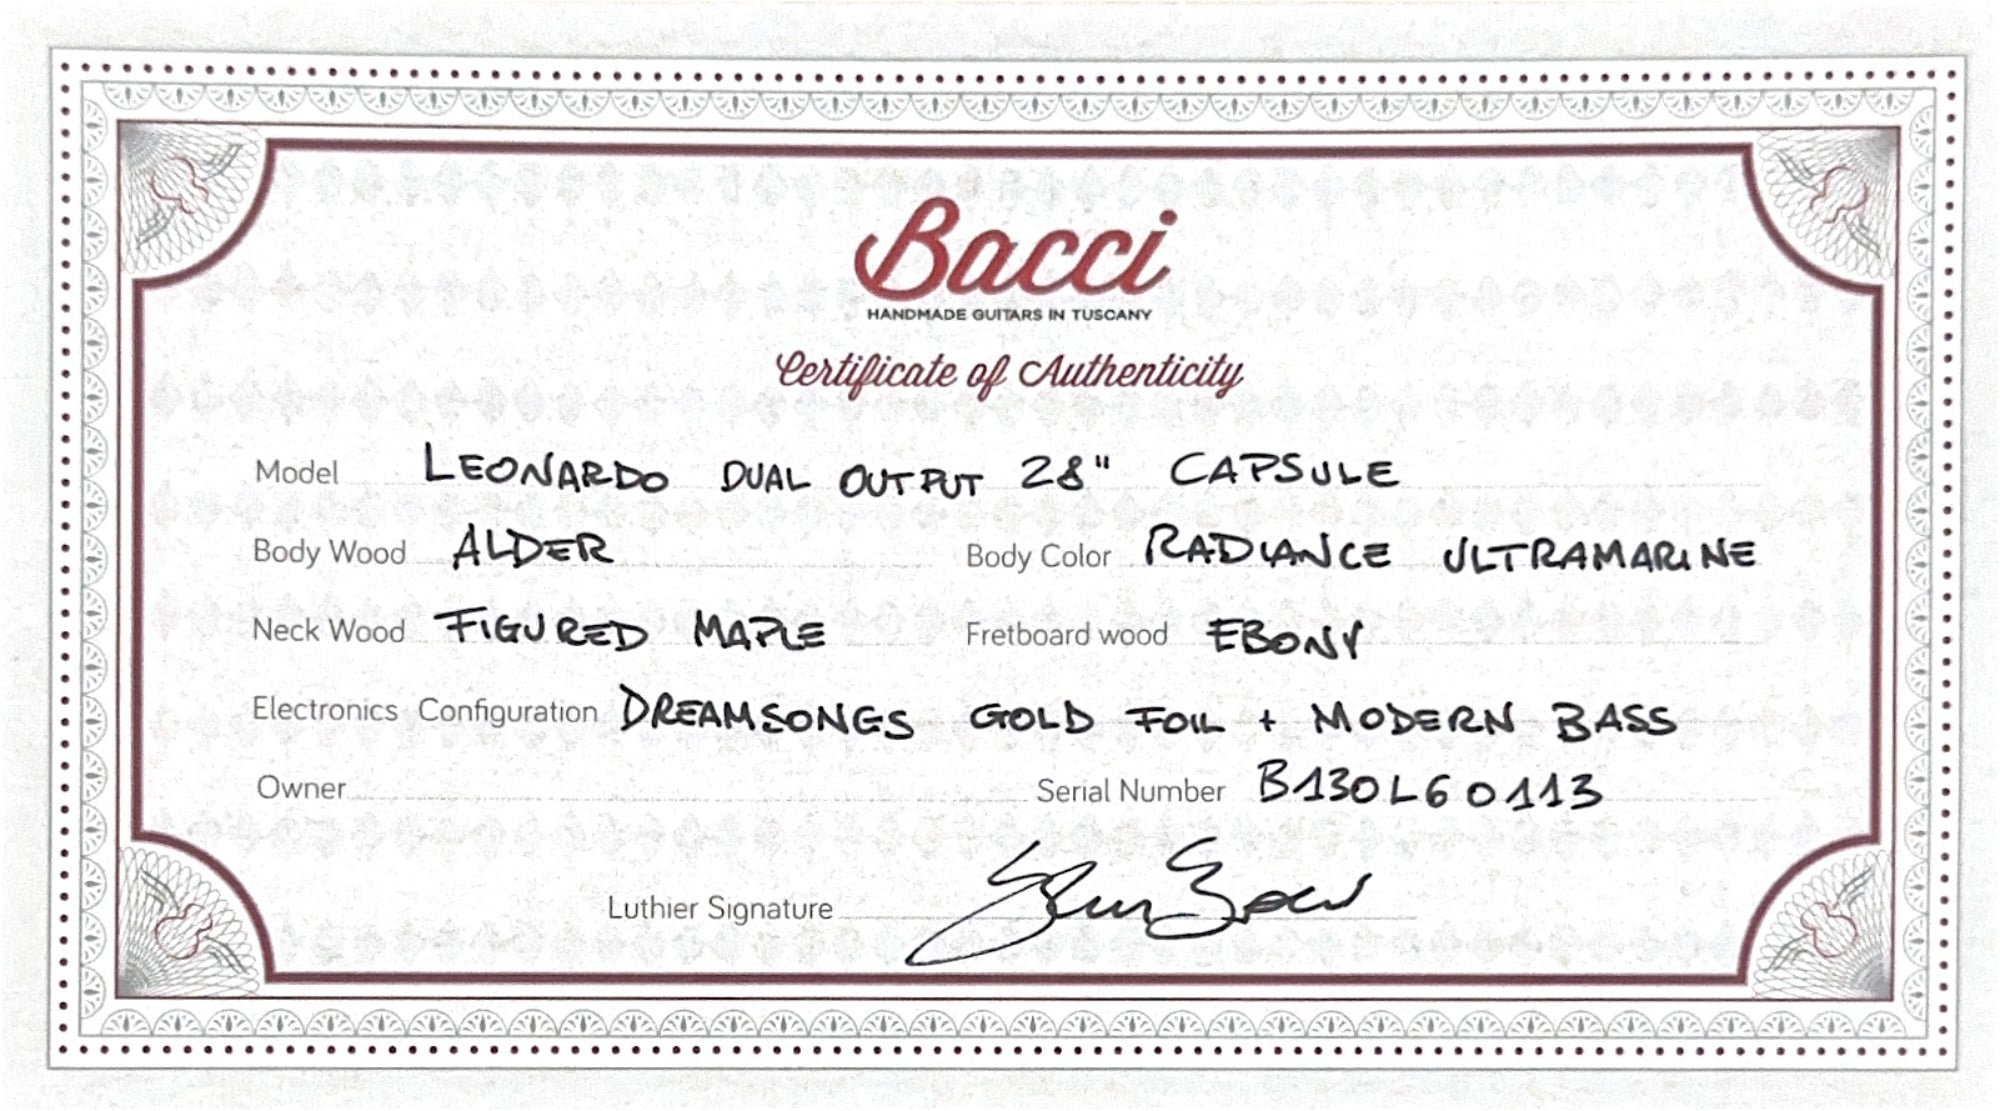 Bacci
HANDMADE GUITARS IN TUSCANY
Certificate of Authenticity
Model LEONARDO DUAL OUTPUT 28" CAPSULE
Body Wood ALDER Body Color RADIANCE ULTRAMARINE
Neck Wood FIGURED MAPLE Fretboard wood EBONY
Electronics Configuration DREAMSONGS GOLD FOIL + MODERN BASS
Owner Serial Number B130L60113
Luthier Signature